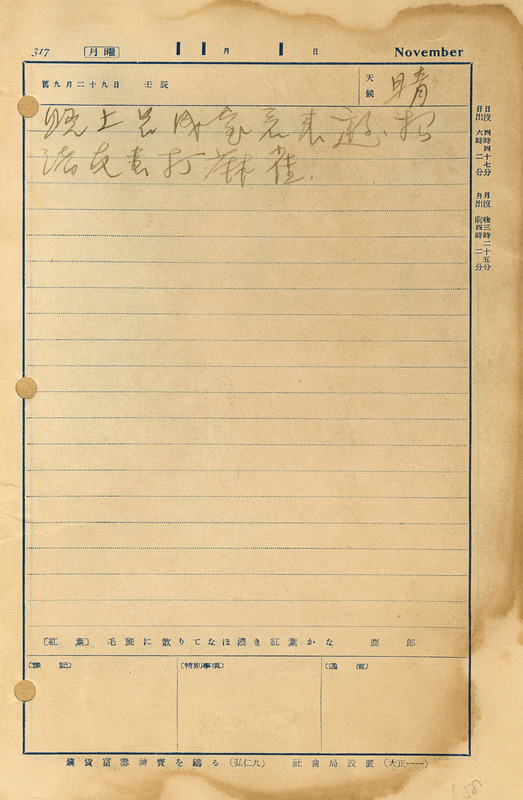 317 月曜 11月11日 November
舊九月二十九日 壬辰 天候 晴
晚上呂成家君來遊、招
諸友去打麻雀.
日出 六時二分
日沒 四時四十七分
月出 前四時二分
月沒 後三時二十五分
〔紅葉〕 毛氈に散りてなほ濃き紅葉かな
〔課記〕 〔特別事項〕 〔通信〕
錢貨富壽神寶を鑄る(弘仁九) 社會局設置(大正一一)
158